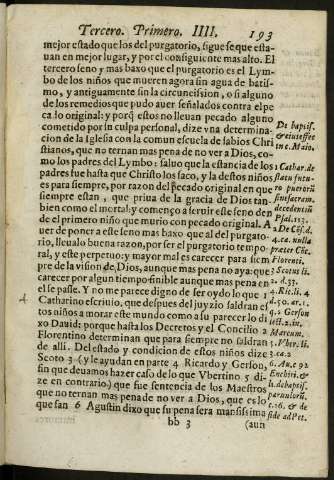 Tercero. Primero. IIII. 193
mejor estado que los del purgatorio, sigue se, que esta-
uan en mejor lugar, y por el consiguiente mas alto. El
tercero seno y mas baxo que el purgatorio es el Lym-
bo de los niños que mueren agora sin agua de batis-
mo, y antiguamente sin la circuncission, o si alguno
de los remedios que pudo auer señalados contra el pe
ca lo original: y porq̃ estos no lleuan pecado alguno
cometido por su culpa personal, dize vna determina-
cion de la Iglesia con la comun escuela de sabios Chri
stianos, que no ternan mas pena de no ver a Dios, co-
mo los padres del Lymbo: saluo que la estancia de los
padres fue hasta que Christo los saco, y la destos niños
es para siempre, por razon del pecado original en que
siempre estan, que priua de la gracia de Dios tan-
bien como el mortal; y començo a seruir este seno den
de el primero niño que murio con pecado original. A
uer de poner a este seno mas baxo que al del purgato-
rio, lleualo buena razon, por ser el purgatorio tempo
ral, y este perpetuo: y mayor mal es carecer para siem
pre de la vision de Dios, aunque mas pena no aya: que
carecer por algun tiempo finible aunque mas pena en
el se passe. Y no me parece digno de ser oydo lo que 1
Catharino escriuio, que despues del juyzio saldran es
tos niños a morar este mundo como a su parecer lo di
xo Dauid: porque hasta los Decretos y el Concilio 2
Florentino determinan que para siempre no saldran
de alli. Del estado y condicion de estos niños dize
Scoto 3 (y le ayudan en parte 4 Ricardo y Gerson,
sin que deuamos hazer caso de lo que Vbertino 5 di-
ze en contrario) que fue sentencia de los Maestros
que no ternan mas pena de no ver a Dios, que es lo
que san 6 Agustin dixo que su pena sera mansissima
bb 3 (aun
De baptis.
& eius effec
in c. Maio.
1 Cathar. de
statu futu-
ro puerorũ
sine sacram.
decedentiũ
Psal. 113.
2 De Cõs. d.
4. ca. nulla
præter Cõc.
Florenti.
3 Scotus li.
2. d. 33.
4 Ric. li. 4.
5 Vber. li.
3. ca. 2
6 Au. c 92
Enchiri. &
li. de baptis.
paruulorũ.
c. 16. & de
fide ad Pet.